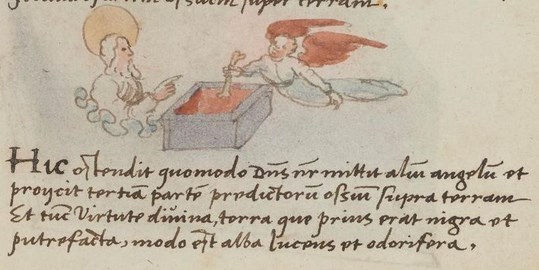 super terram.
Hic ostendit quomodo Dn̄s nr̄ mittit aliū angelū et
proijcit tertiā partē predictorū ossiū supra terram
Et tūc Virtute diuina, terra que prius erat nigra et
putrefacta, modo est alba lucens et odorifera,